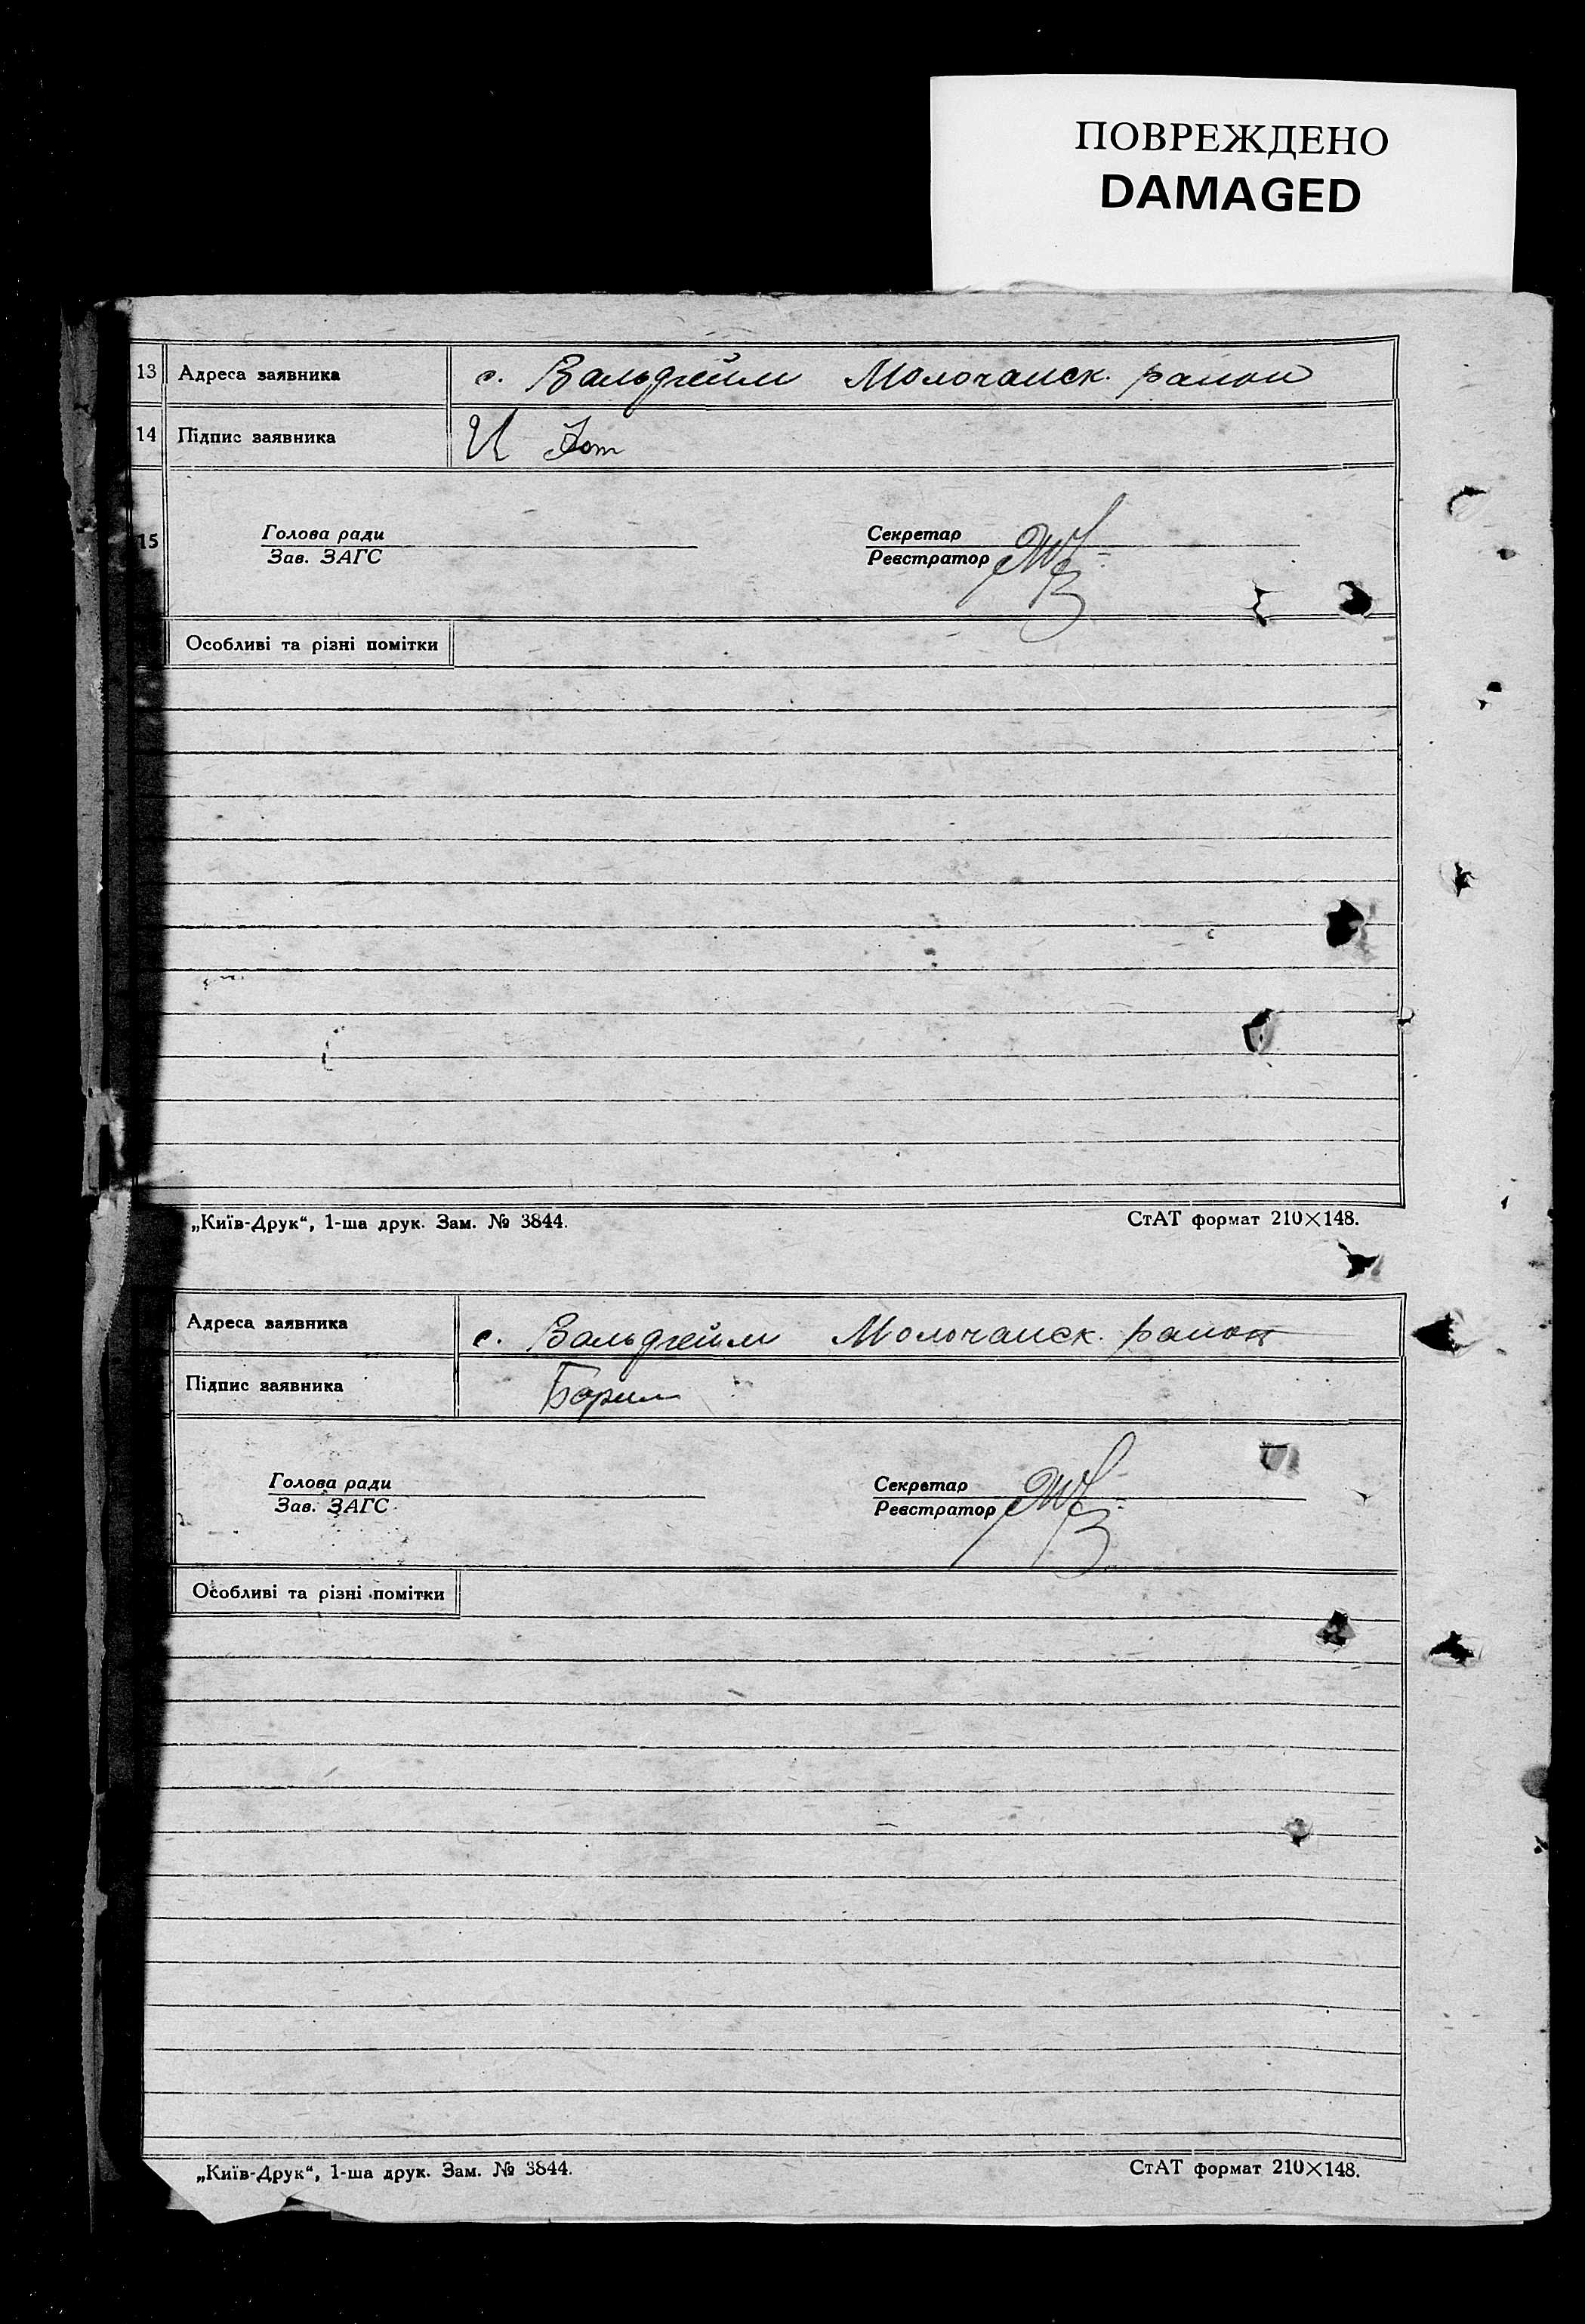 ПОВРЕЖДЕНО
DAMAGED
13 Адреса заявника с. Вальдгейм Молочанск. район
14 Підпис заявника И
15 Голова ради Секретар
Зав. ЗАГС Реєстратор
Особливі та різні помітки
„Київ-Друк“, 1-ша друк. Зам. № 3844. СтАТ формат 210×148.
Адреса заявника с. Вальдгейм Молочанск. район
Підпис заявника
Голова ради Секретар
Зав. ЗАГС Реєстратор
Особливі та різні помітки
„Київ-Друк“, 1-ша друк. Зам. № 3844. СтАТ формат 210×148.